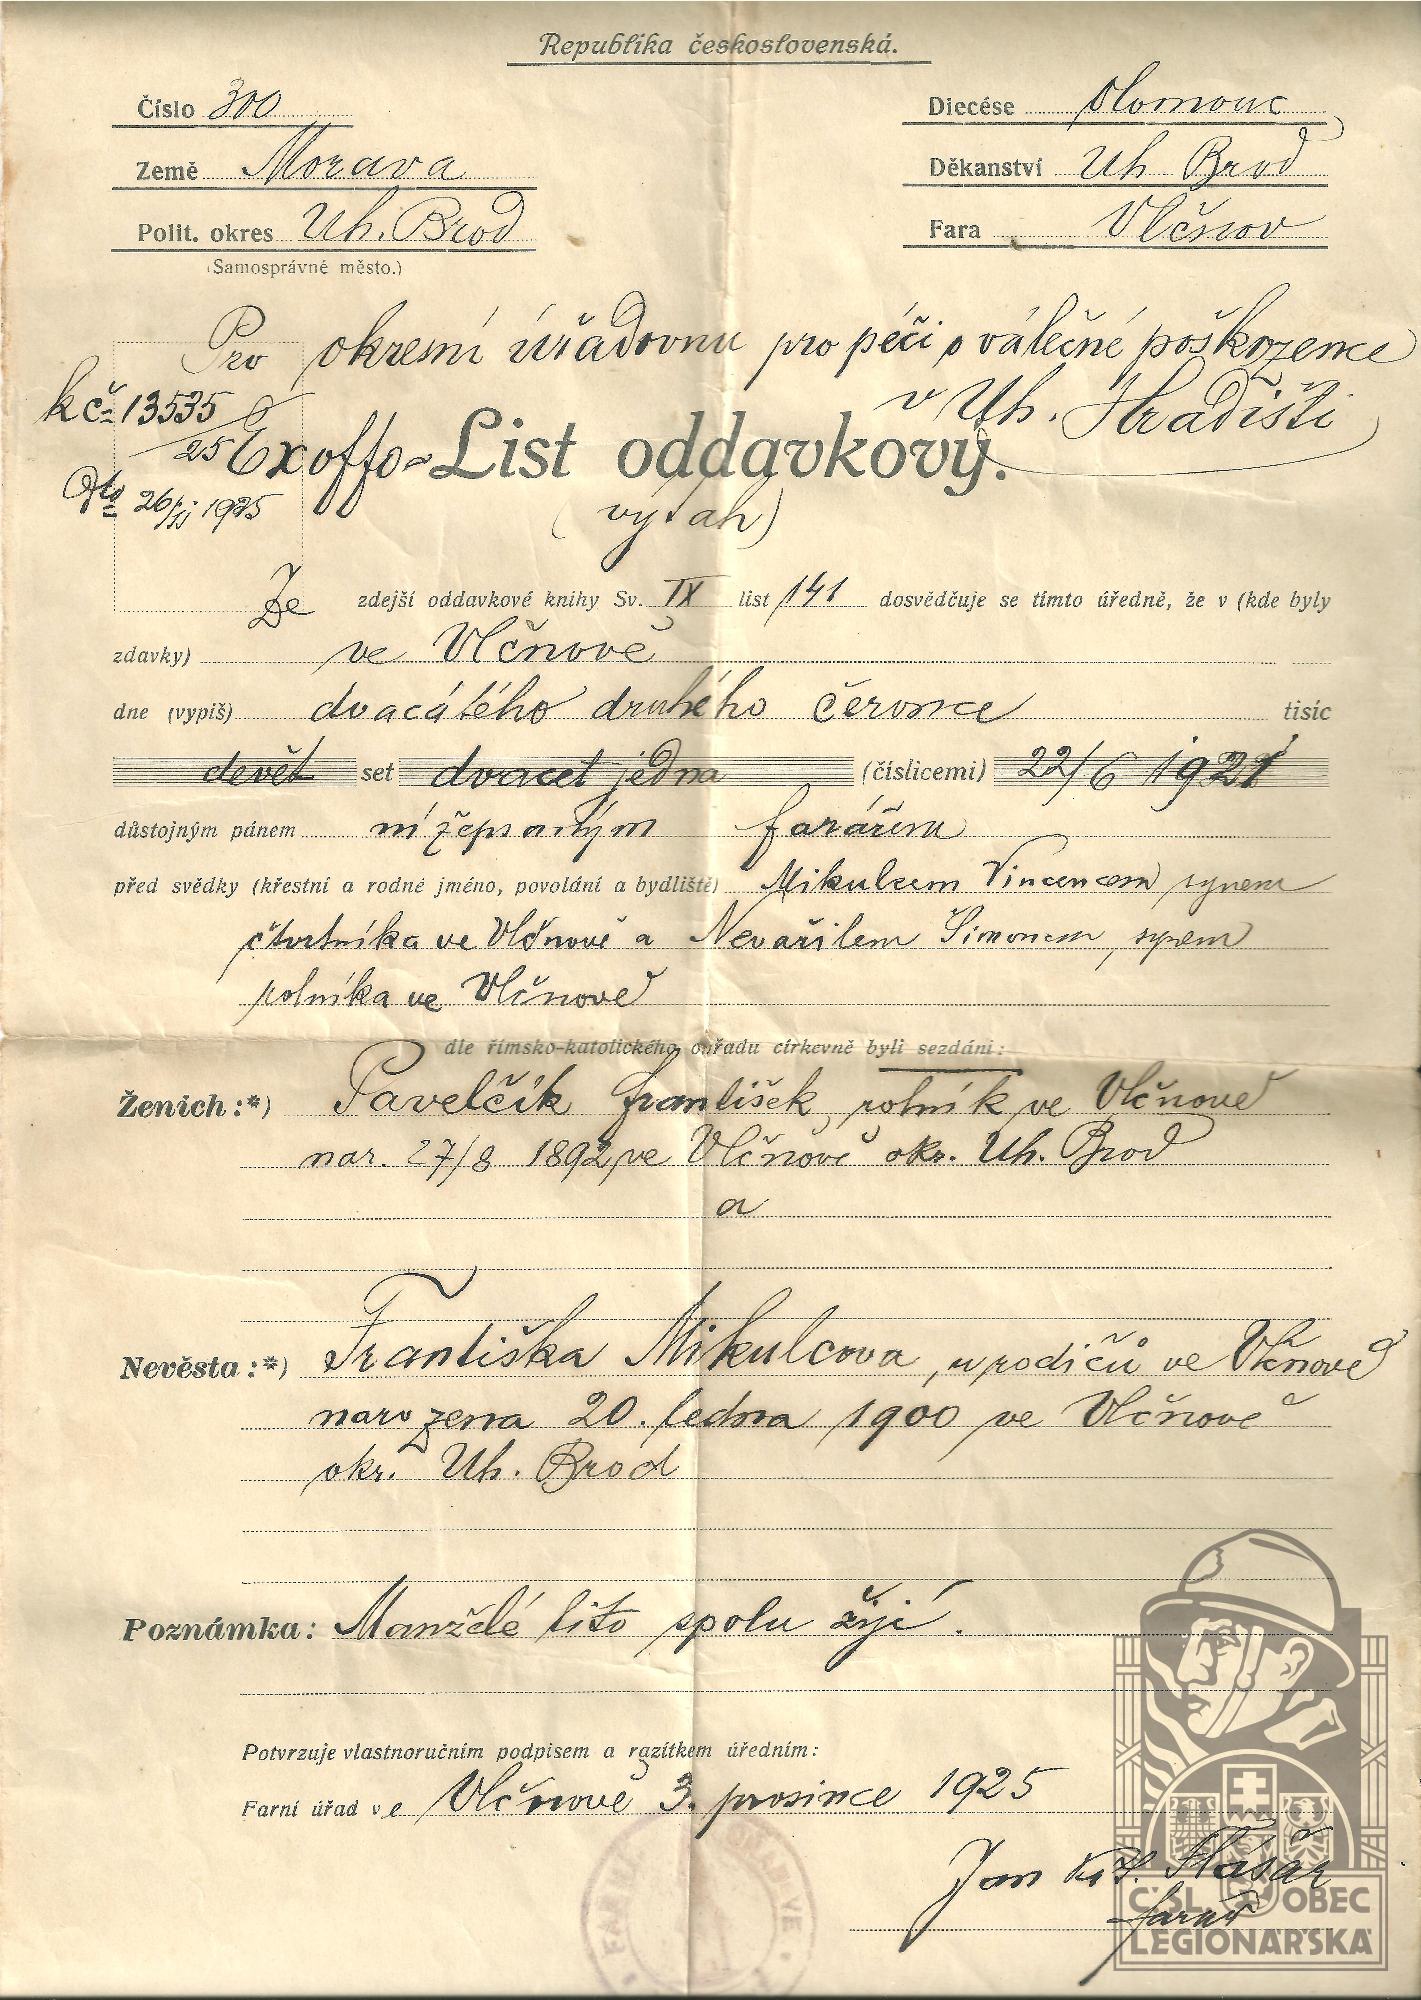 Republika československá.
Číslo 300
Diecése Olomouc
Země Morava
Děkanství Uh Brod
Polit. okres Uh. Brod
Fara Vlčnov
(Samosprávné město.)
Pro okresní úřadovnu pro péči o válečné poškozence
v Uh. Hradišti
kč= 13535
/25
Exoffo-
List oddavkový.
26/XI 1925
(výtah)
Ze zdejší oddavkové knihy Sv. IX list 141 dosvědčuje se tímto úředně, že v (kde byly
zdavky) ve Vlčnově
dne (vypiš) dvacátého druhého července tisíc
devět set dvacet jedna (číslicemi) 22/6 1921
důstojným pánem nížepsaným farářem
před svědky (křestní a rodné jméno, povolání a bydliště) Mikulcem Vincencem synem
čtvrtníka ve Vlčnově a Nevařilem Šimonem, synem
rolníka ve Vlčnově
dle římsko-katolického obřadu církevně byli sezdáni:
Ženich:*) Pavelčík František, rolník ve Vlčnově
nar. 27/8 1892 ve Vlčnově okr. Uh. Brod
a
Nevěsta:*) Františka Mikulcova, u rodičů ve Vlčnově
narozena 20. ledna 1900 ve Vlčnově
okr. Uh. Brod
Poznámka: Manželé tito spolu žijí.
Potvrzuje vlastnoručním podpisem a razítkem úředním:
Farní úřad v e Vlčnově 3. prosince 1925
Jan Flašar
farář
ČSL OBEC
LEGIONÁŘSKÁ